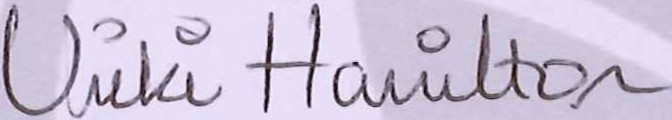 Vicki Hamilton